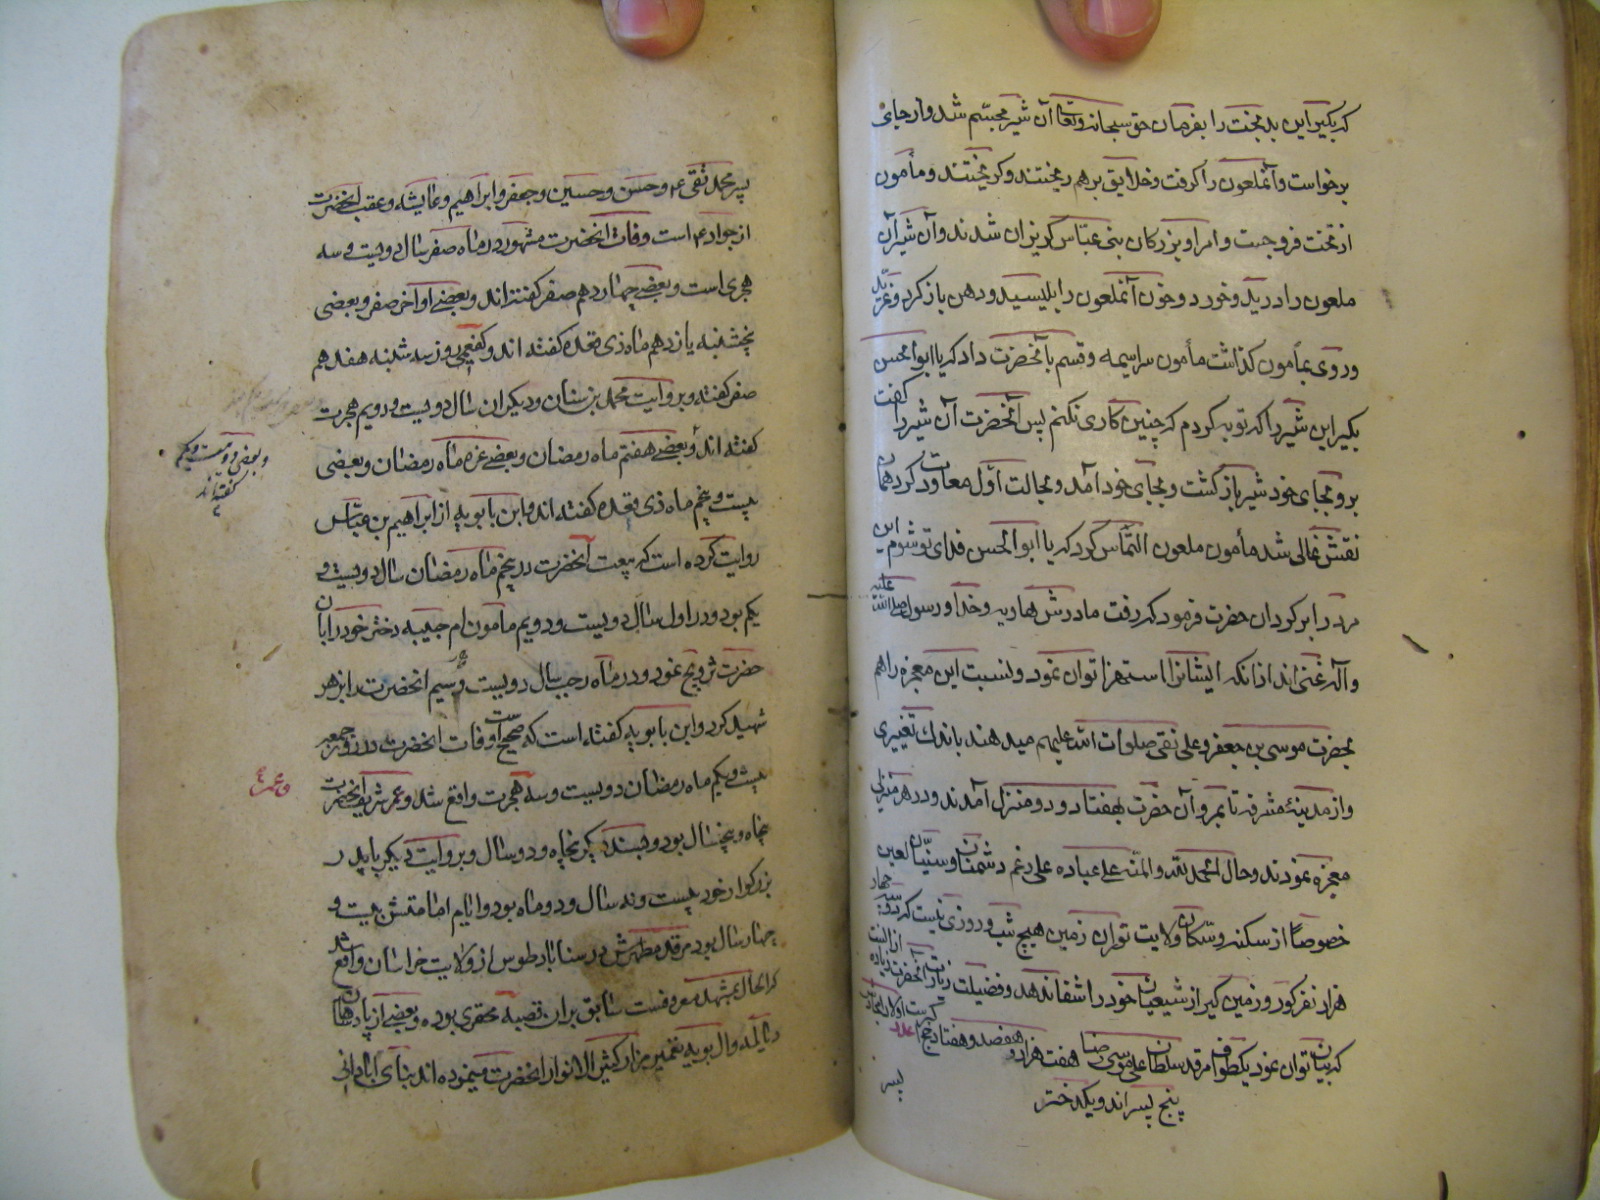 که بگیر این بدبخت را بفرمان حق سبحانه وتعا آن شیر مجسّم شد و از جای
برخواست و آنملعون را گرفت و خلایق بر هم ریختند و گریختند و مأمون
از تخت فرو جست و امرا و بزرکان بنی عبّاس کریزان شدند و آن شیر آن
ملعون را درید و خورد و خون آنملعون را بلیسید و دهن باز کرد و غرّید
و روی بمأمون کذاشت مأمون سراسیمه و قسم بآنحضرت داد که یا ابوالحسن
بگیر این شیر را که توبه کردم که چنین کاری نکنم پس آنحضرت آن شیر را گفت
برو بجای خود شیر باز کشت و بجای خود آمد و بحالت اوّل معاودت کرد همان
نقش نمالی شد مأمون ملعون التماس کرد که یا ابوالحسن فدای تو شوم این
مرد را بر کردان حضرت فرمود که رفت مادرش هاویه و خدا و رسول صلی الله علیه
و آله غنی اند از انکه ایشانرا استهزا توان نمود و نسبت این معجزه را هم
بحضرت موسی بن جعفر و علی نقی صلوات الله علیهم میدهند باندك تغییری
و از مدینهٔ مشرفه تا بمرو آن حضرت بهفتاد و دو منزل آمدند و در هر منزلی
معجزه نمودند و حال الحمد لله والمنّه علی عباده علی رغم دشمنان و سنیّان لعین
خصوصاً از سکنه و سکان ولایت توران زمین هیچ شب و روزی نیست که دو سه چهار
هزار نفر کور و زمین کیر از شیعیان خود را شفا ندهد و فضیلت زیارت آنحضرت زیاده از آنست
که بیان توان نمود یکطواف مرقد سلطان علی موسی رضا هفت هزار و هفصد و هفتاد حج
پنج پسراند و یکدختر
پسر
پسر محمد تقی ع و حسن و حسین و جعفر و ابراهیم و عایشه و عقب انحضرت
از جواد ع است وفات انحضرت مشهور در ماه صفر سال دویست و سه
هجری است و بعضی چهاردهم صفر کفته اند و بعضی اواخر صفر و بعضی
پنجشنبه یازدهم ماه ذی قعده کفته اند و کفعمی روز سه شنبه هفدهم
صفر کفته و بروایت محمد بن سنان و دیکران سال دویست و دویم هجرت
کفته اند و بعضی هفتم ماه رمضان و بعضی غره ماه رمضان و بعضی
و بعضی دویست و یکم
گفته اند
بیست و پنجم ماه ذی قعده کفته اند و ابن بابویه از ابراهیم بن عبّاس
روایت کرده است که بیعت آنحضرت در پنجم ماه رمضان سال دویست و
یکم بود و در اول سال دویست و دویم مأمون ام حبیبه دختر خود را بان
حضرت تزویج نمود و در ماه رجب سال دویست و سیم انحضرت را بزهر
شهید کرد و ابن بابویه کفته است که صحیح آنست وفات انحضرت در روز جمعه
بیست و یکم ماه رمضان دویست و سه هجرت واقع شد و عمر شریف انحضرت
و عمر ع
پنجاه و پنجسال بود و چند دیکر پنجاه و دو سال و بروایت دیکر با پدر
بزرکوار خود بیست و نه سال و دو ماه بود و ایام امامتش بیست و
چهار سال بود مرقد مطهرش در سناباد طوس از ولایت خراسان واقع شد
که الحال بمشهد معروفست سابق بر ان قصبهٔ محقری بوده و بعضی از پادشاهان
دیالمه و ال بویه تعمیر مزار کثیر الانوار انحضرت میمنوده اند بنای آبادانی